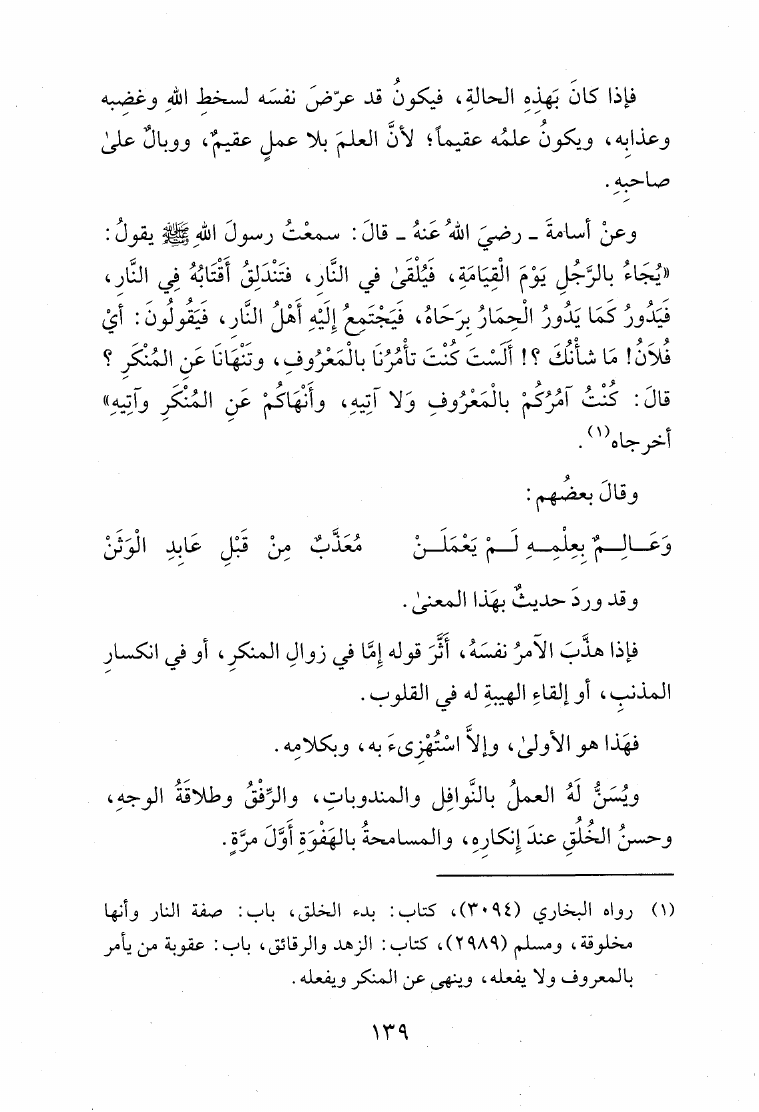 فإذا كانَ بَهذِهِ الحالةِ، فيكونُ قد عرّضَ نفسَه لسخطِ اللهِ وغضبِه
وعذابِه، ويكونُ علمُه عقيماً؛ لأنَّ العلمَ بلا عملٍ عقيمٌ، ووبالٌ علىٰ
صاحبِهِ.
وعنْ أسامةَ ـ رضيَ اللهُ عَنهُ ـ قالَ: سمعْتُ رسولَ اللهِ ﷺ يقولُ:
«يُجَاءُ بالرَّجُلِ يَوْمَ الْقِيَامَةِ، فَيُلْقَىٰ في النَّارِ، فتَنْدَلِقُ أَقْتَابُهُ فِي النَّارِ،
فَيَدُورُ كَمَا يَدُورُ الْحِمَارُ بِرَحَاهُ، فَيَجْتَمِعُ إِلَيْهِ أَهْلُ النَّارِ، فَيَقُولُونَ: أَيْ
فُلاَنُ! مَا شأْنُكَ ؟! أَلَسْتَ كُنْتَ تأْمُرُنَا بالْمَعْرُوفِ، وتَنْهَانَا عَنِ المُنْكَرِ ؟
قالَ: كُنْتُ آمُرُكُمْ بالْمَعْرُوفِ وَلا آتِيهِ، وأَنْهَاكُمْ عَنِ المُنْكَرِ وآتِيهِ»
أخرجاه(١).
وقالَ بعضُهم:
وَعَـالِـمٌ بِعِلْمِـهِ لَـمْ يَعْمَلَـنْ مُعَذَّبٌ مِنْ قَبْلِ عَابِدِ الْوَثَنْ
وقد وردَ حديثٌ بهَذا المعنىٰ.
فإذا هذَّبَ الآمرُ نفسَهُ، أَثَّرَ قوله إمَّا في زوالِ المنكرِ، أو في انكسارِ
المذنبِ، أو إلقاءِ الهيبةِ له في القلوب.
فهَذا هو الأولىٰ، وإلاَّ اسْتُهْزِىءَ به، وبكلامِه.
ويُسَنُّ لَهُ العملُ بالنَّوافِلِ والمندوباتِ، والرِّفْقُ وطلاقَةُ الوجهِ،
وحسنُ الخُلُقِ عندَ إنكارِهِ، والمسامحةُ بالهَفْوَةِ أَوَّلَ مرَّةٍ.
(١) رواه البخاري (٣٠٩٤)، كتاب: بدء الخلق، باب: صفة النار وأنها
مخلوقة، ومسلم (٢٩٨٩)، كتاب: الزهد والرقائق، باب: عقوبة من يأمر
بالمعروف ولا يفعله، وينهى عن المنكر ويفعله.
١٣٩